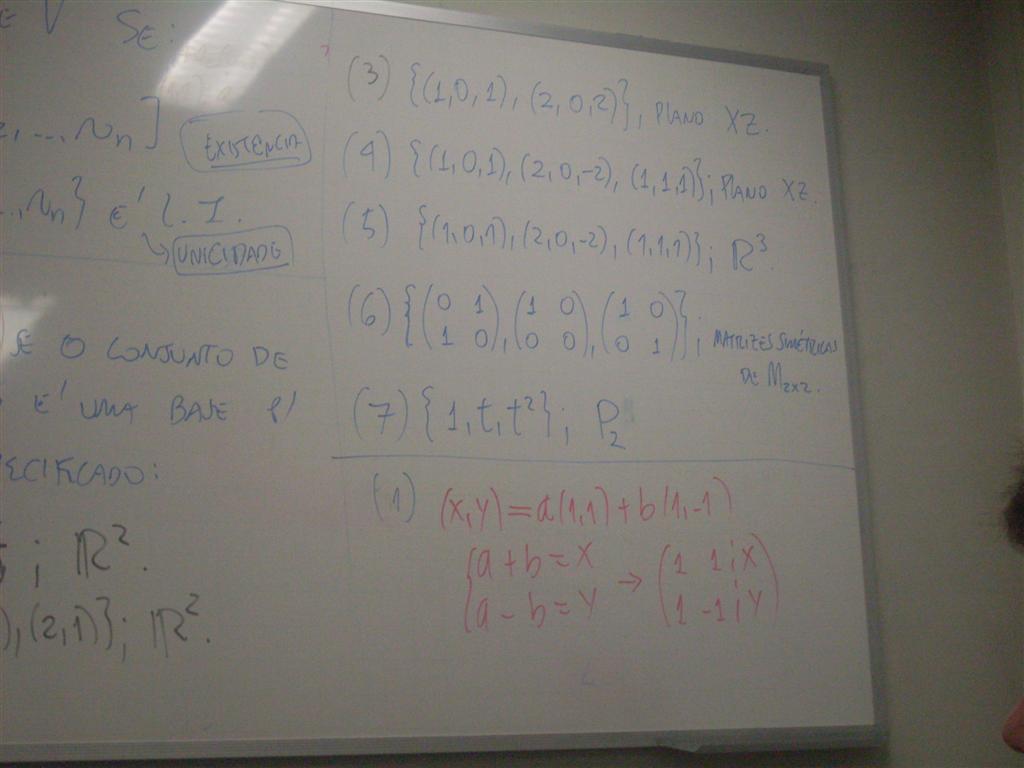 E V SE:
, ..., vn]
EXISTÊNCIA
.., vn} É L.I.
UNICIDADE
SE O CONJUNTO DE
É UMA BASE P/
ECIFICADO:
; ℝ².
), (2,1)}; ℝ².
(3) {(1,0,1), (2,0,2)}, PLANO XZ.
(4) {(1,0,1), (2,0,-2), (1,1,1)}; PLANO XZ.
(5) {(1,0,1), (2,0,-2), (1,1,1)}; ℝ³.
(6) {(0 1), (1 0), (1 0)};
(1 0), (0 0), (0 1)
MATRIZES SIMÉTRICAS
DE M2x2.
(7) {1, t, t²}; P2
(1) (x,y) = a(1,1) + b(1,-1)
{a + b = x → (1 1 ¦ x)
{a - b = y (1 -1 ¦ y)